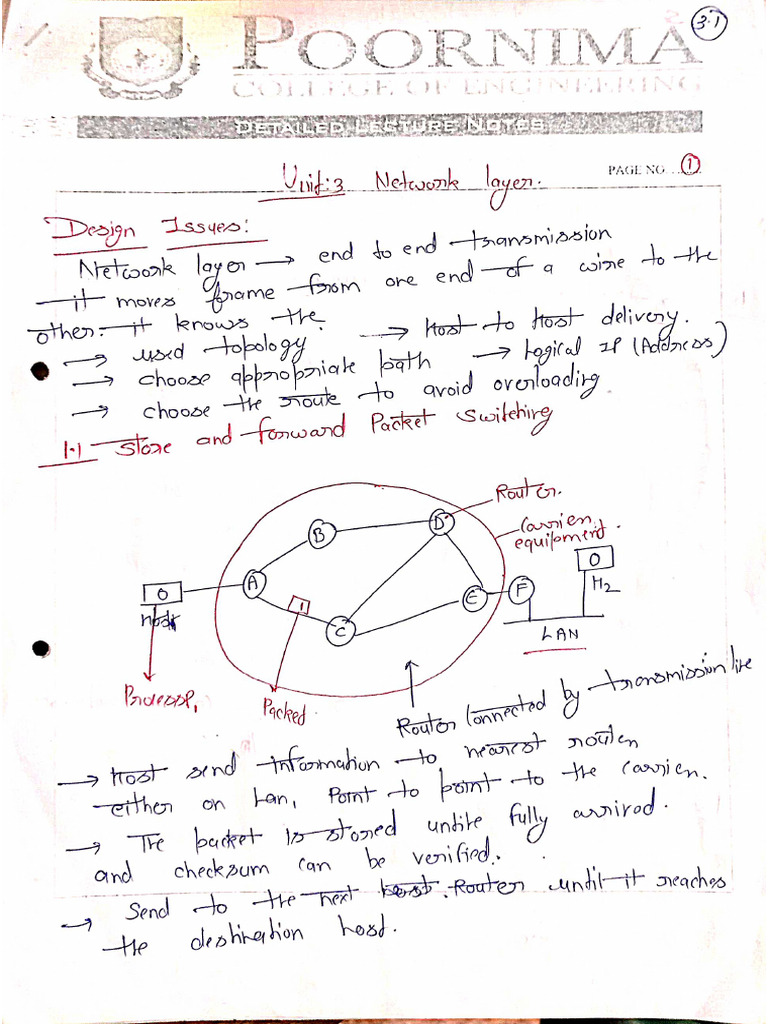 3.1
POORNIMA
COLLEGE OF ENGINEERING
DETAILED LECTURE NOTES
PAGE NO. ... 1
Unit:3 Network layer.
Design Issues:
Network layer → end to end transmission
it moves frame from one end of a wire to the
other. it knows the.
→ used topology → Host to Host delivery.
→ choose appropriate path → Logical IP (Address)
→ choose the route to avoid overloading
1.1 Store and forward Packet Switching
Router.
Carrier
equipment.
B
D
A
1
C
E
F
H2
LAN
Processe,
Packed.
Router Connected by transmission line
→ Host send information to nearest router
either on Lan, Point to point to the carrier.
→ The packet is stored untile fully arrived.
and checksum can be verified.
→ Send to the next Router until it reaches
the destination host.